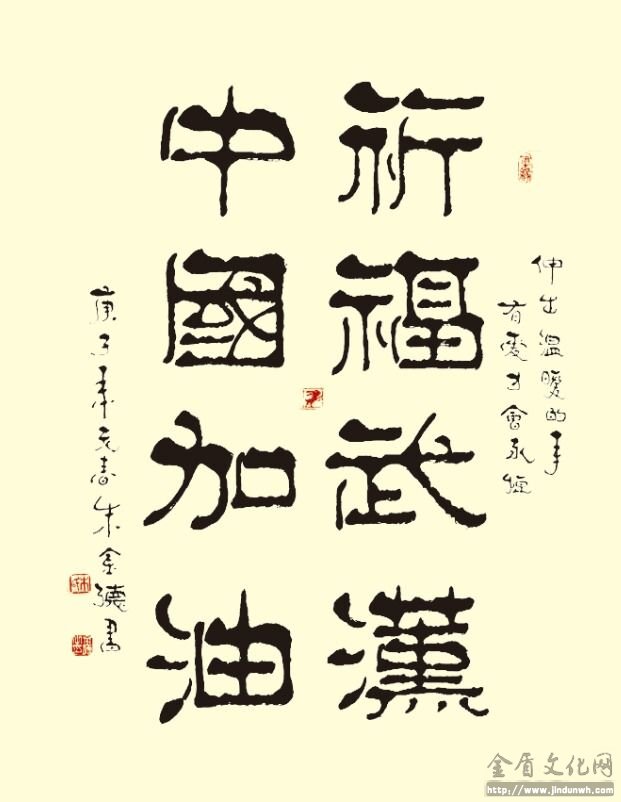 伸出溫暖的手
有愛才會永恆
祈福武漢
中國加油
庚子年元春朱金德書
金盾文化网
http://www.jindunwh.com